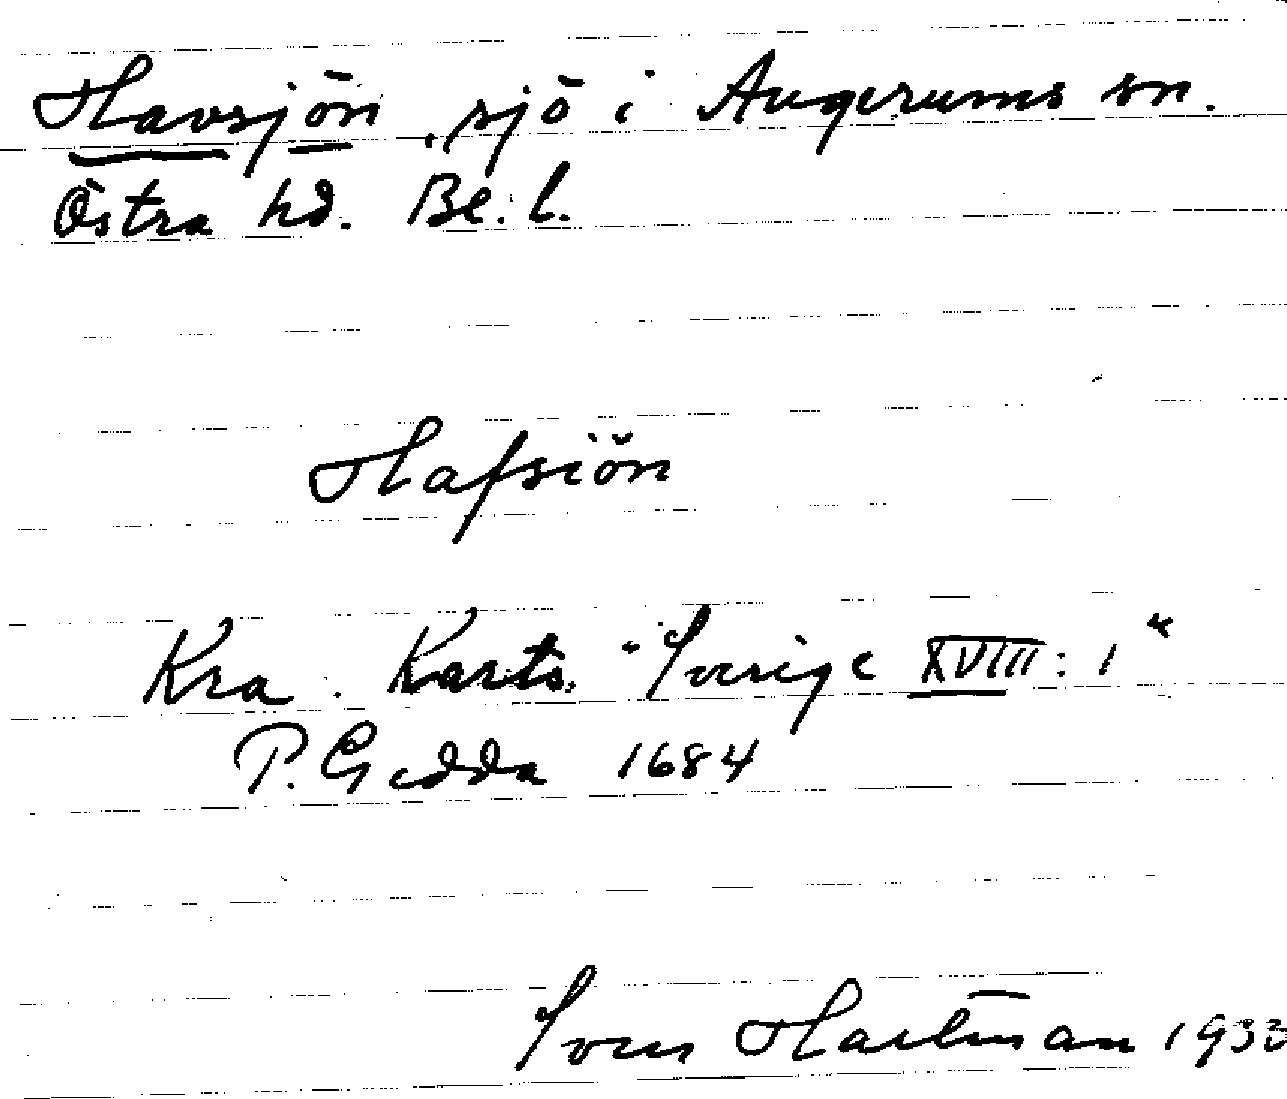 Havsjön, sjö i Augerums sn.
Östra hd. Bl. l.
Hafsiön
Kra. Kartv. "Sverige XVIII: 1"
P. Gedda 1684
Sven Hartman 1933